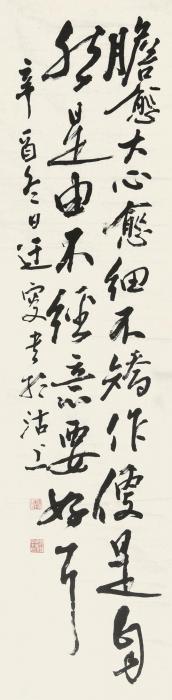 膽愈大心愈細不矯作便是自
然是由不經意要好耳
辛酉冬日廷叟書於沽上